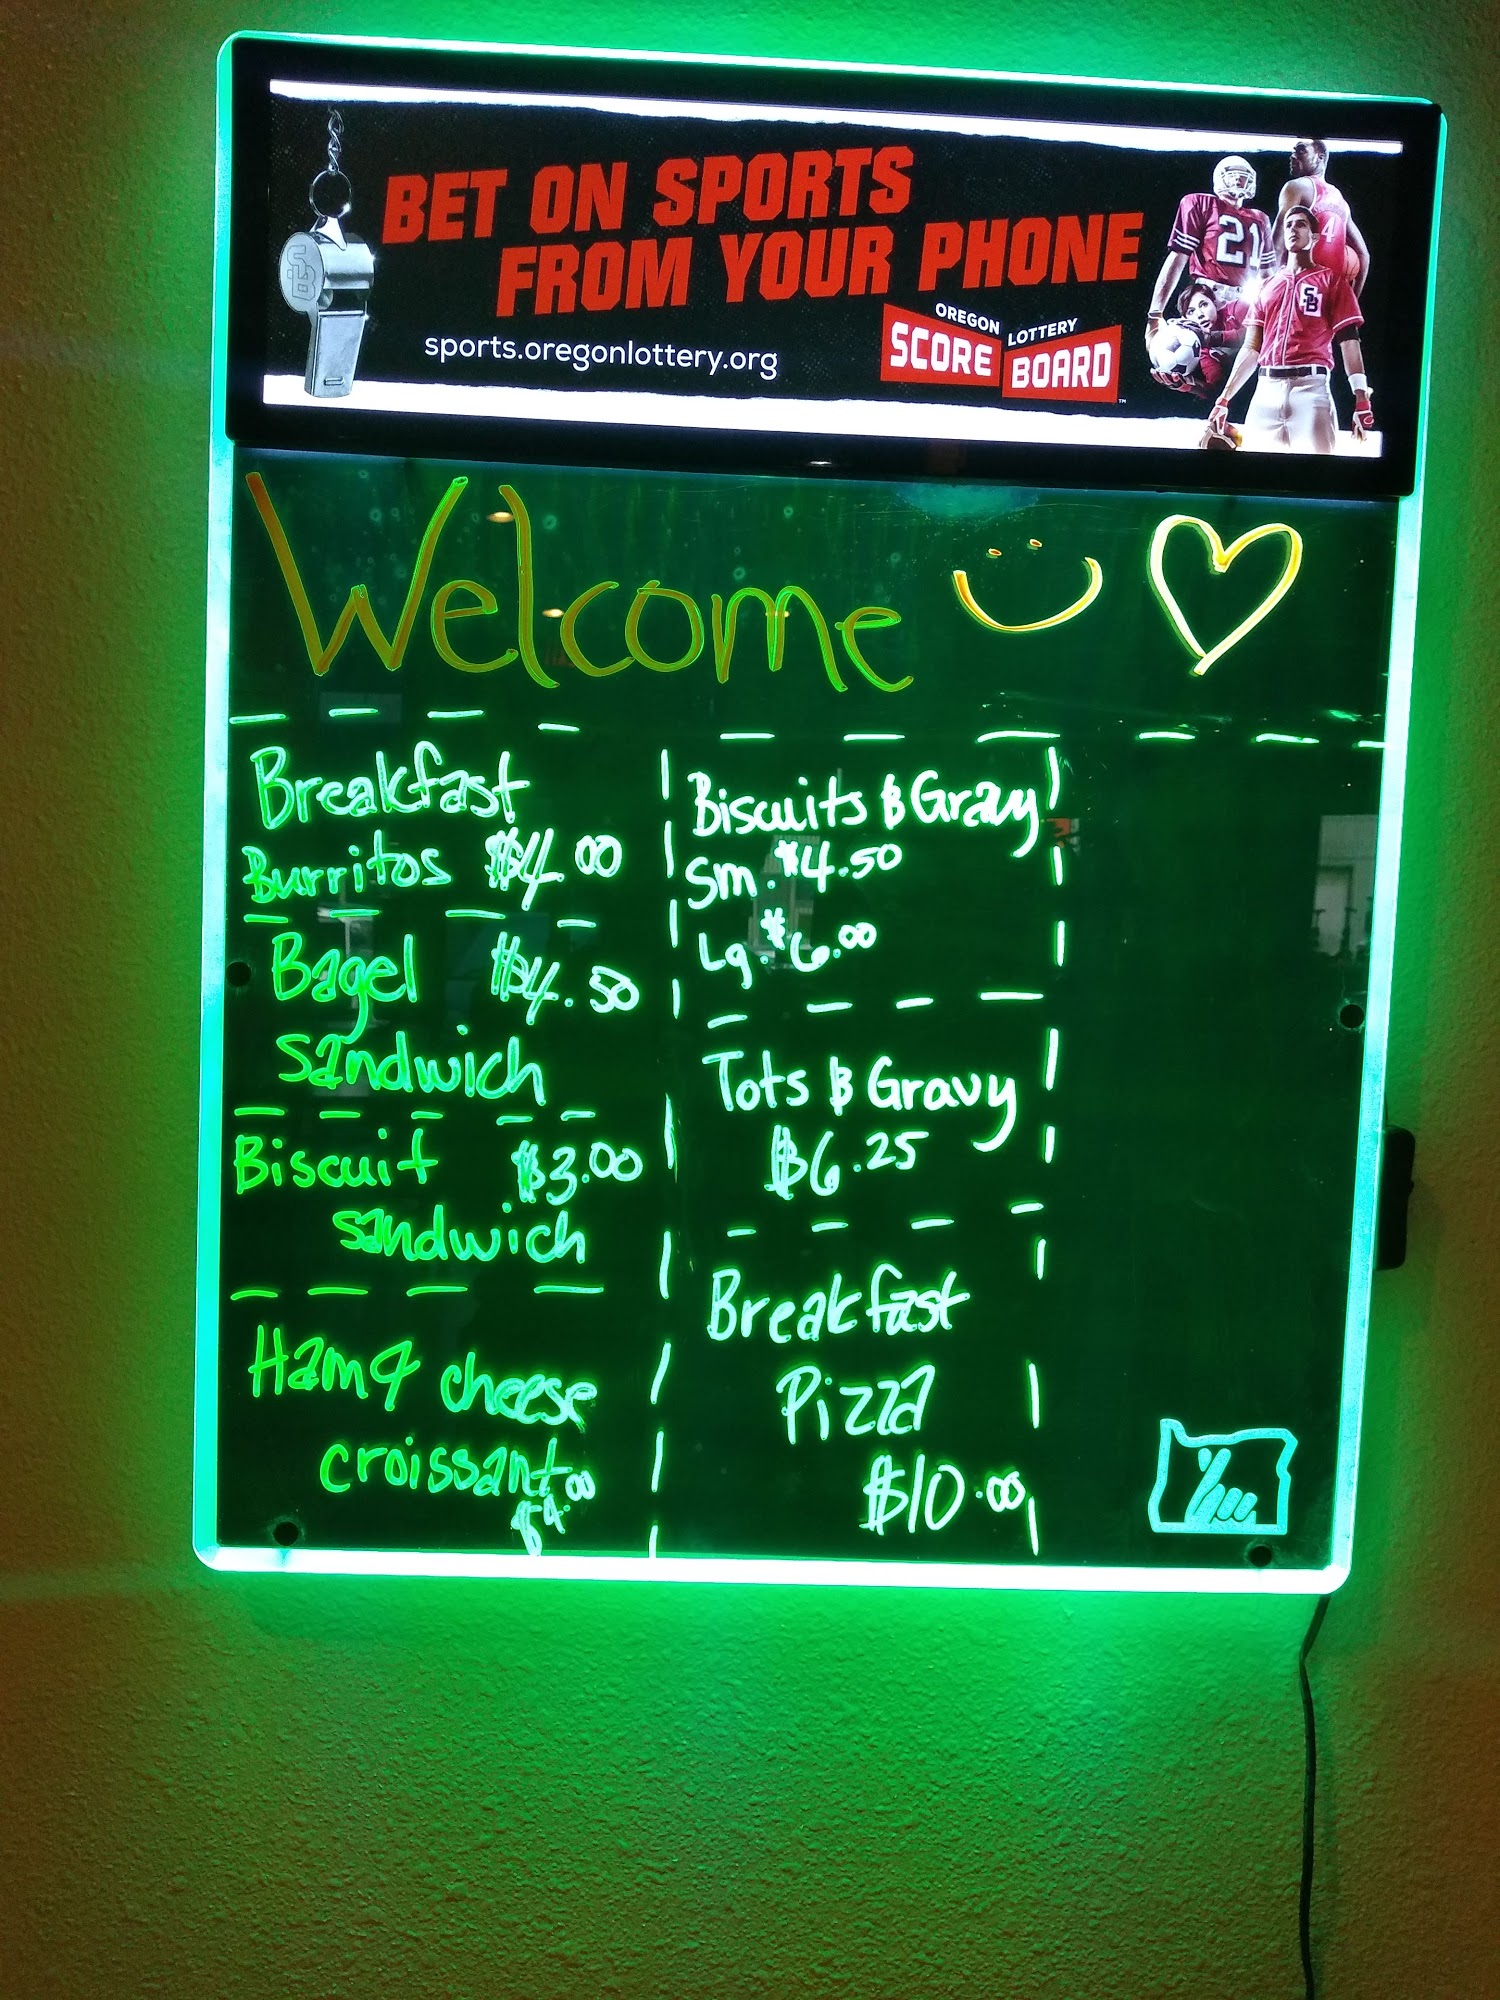 BET ON SPORTS
FROM YOUR PHONE
sports.oregonlottery.org
OREGON LOTTERY
SCORE BOARD™
SB
21
4
SB
Welcome
Breakfast
Burritos $4.00
Bagel $4.50
Sandwich
Biscuit $3.00
sandwich
Ham & cheese
croissant
$4.00
Biscuits & Gravy
Sm. $4.50
Lg. $6.00
Tots & Gravy
$6.25
Breakfast
Pizza
$10.00